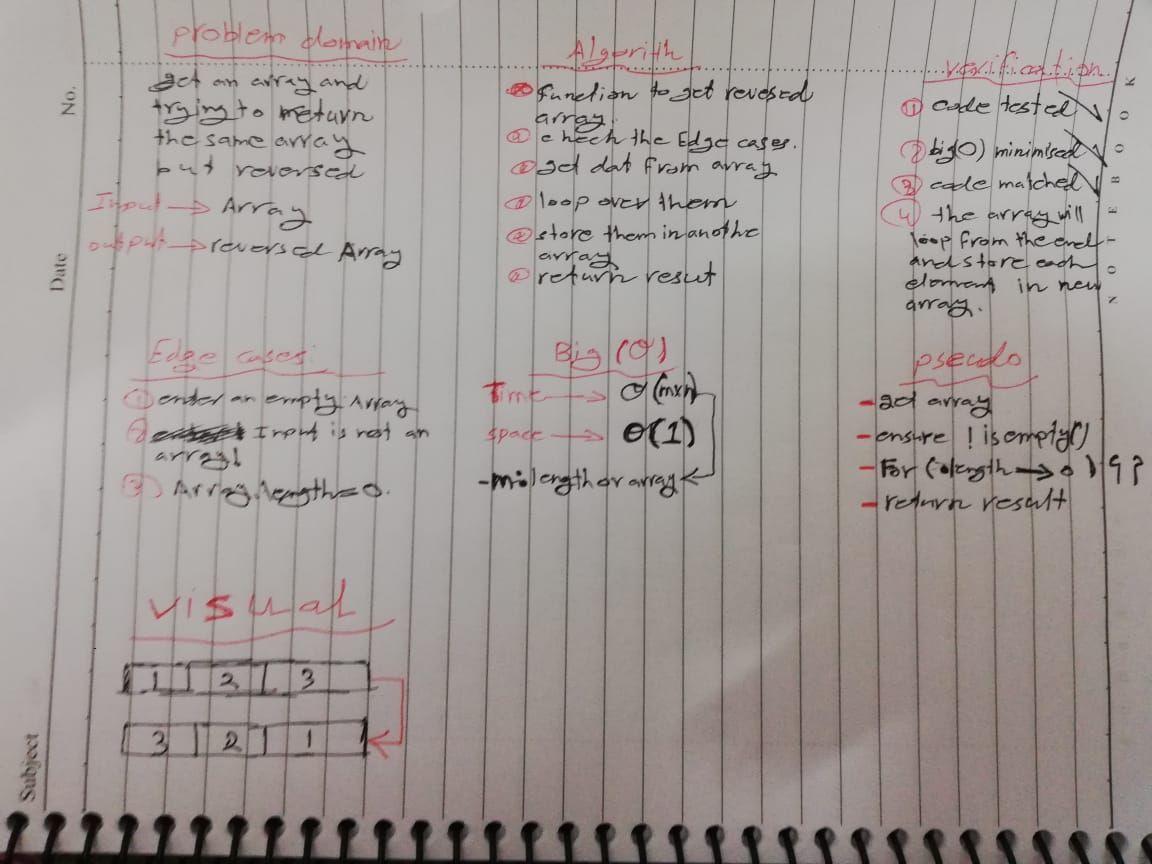 problem domain
get an array and
trying to return
the same array
but reversed
Input → Array
output → reversed Array
Algorith
Function to get revesed
array.
① chech the Edge cases.
get dat from array
loop over them
② store them in anothe
array
return resut
verification
① code tested
② big(O) minimised
③ code matched
④ the array will
loop from the end
and store each
element in new
array.
Edge cases:
① enter an empty Array
② Input is not an
array!
③ Array.length = 0.
Big (O)
Time → O(mxn)
space → O(1)
- m: length or array
pseudo
- get array
- ensure ! is empty()
- For ( length → 0 ) { }
- return result
visual
1 2 3
3 2 1
No.
Date
Subject